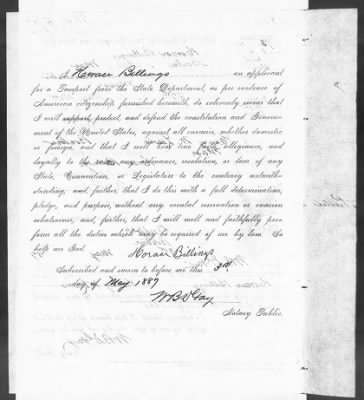 I Horace Billings an applicant
for a Passport from the State Department, as per evidence of
American citizenship furnished herewith, do solemnly swear that
I will support, protect, and defend the constitution and Govern-
ment of the United States, against all enemies, whether domestic
or foreign, and that I will bear true faith, allegiance, and
loyalty to the same any ordinance, resolution, or law of any
State, Convention, or Legislature to the contrary notwith-
standing; and, further, that I do this with a full determination,
pledge, and purpose, without any mental reservation or evasion
whatsoever, and, further, that I will well and faithfully per-
form all the duties which may be required of me by law. So
help me God.
Horace Billings
Subscribed and sworn to before me this 3rd
day of May 1889
Notary Public.